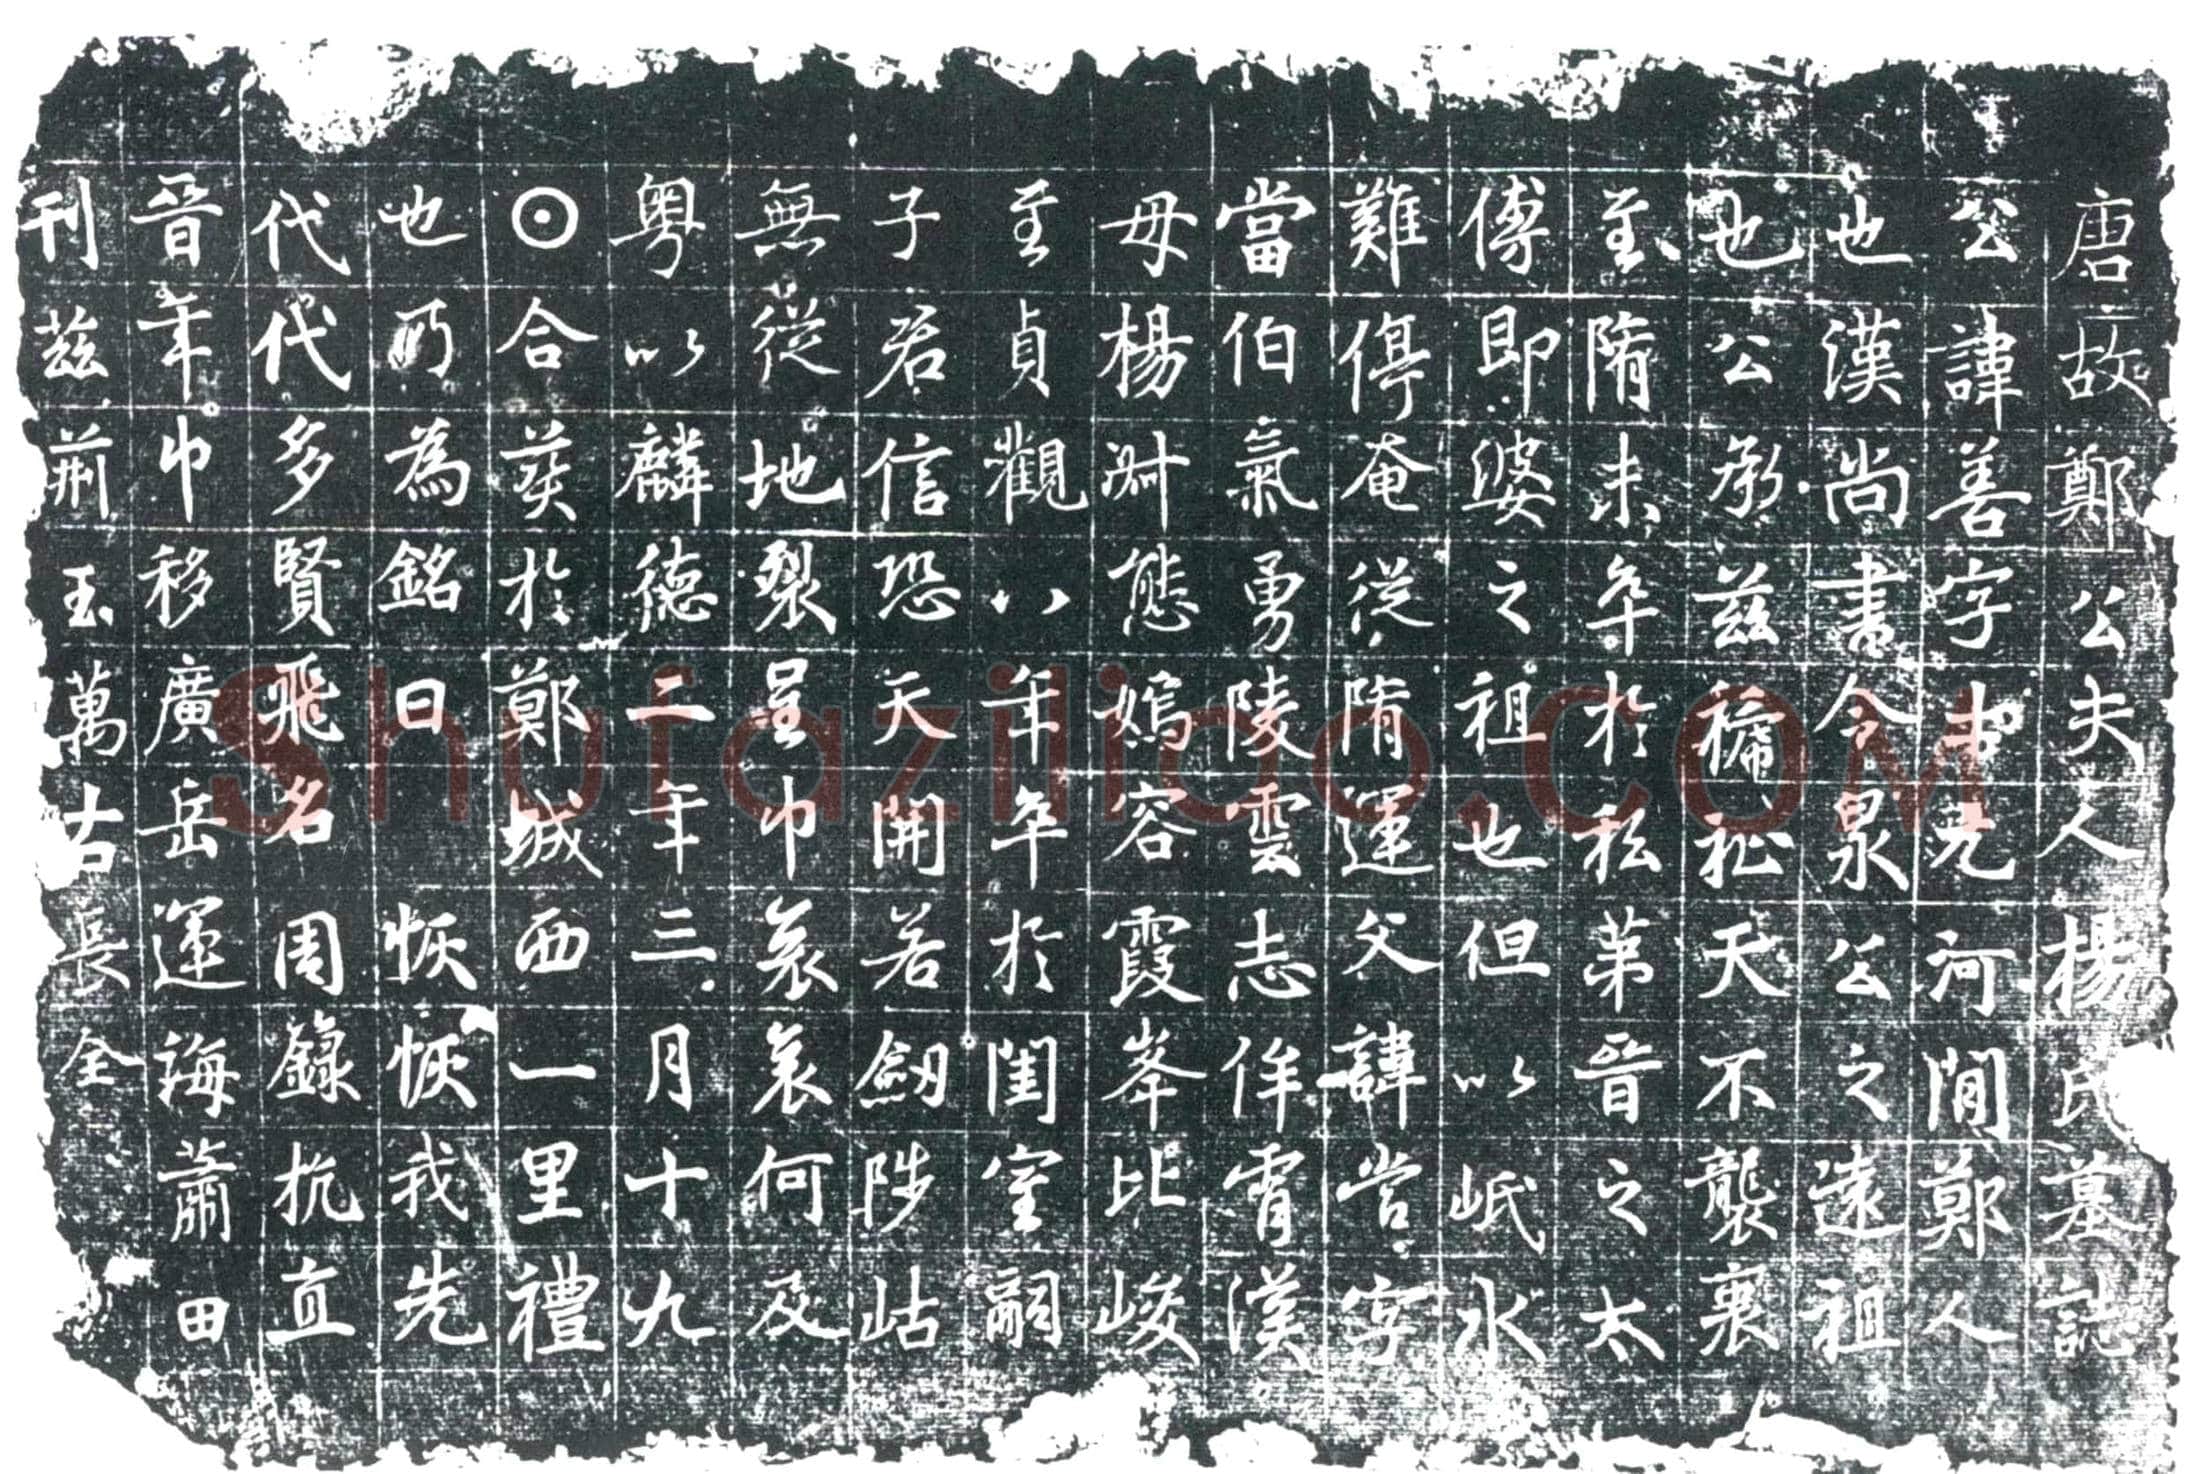 唐故鄭公夫人楊氏墓誌
公諱善字士元河間鄭人
也漢尚書令泉公之遠祖
也公承茲穠祉天不襲裏
至隋末卒於私第晉之太
傅即婆之祖也但以岷水
難停奄從隋運父諱営字
當伯氣勇陵雲志侔霄漢
母楊淑態嫣容霞峯比峻
至貞觀八年卒於閨室嗣
子君信恐天開若劒陟岵
無從地裂呈巾哀哀何及
粤以麟德二年三月十九
☉合葬於鄭城西一里禮
也乃為銘曰 恢恢我先
代代多賢飛名周錄抗直
晉年巾移廣岳運海蕭田
刊茲荊玉萬古長全
Shufaziliao.COM